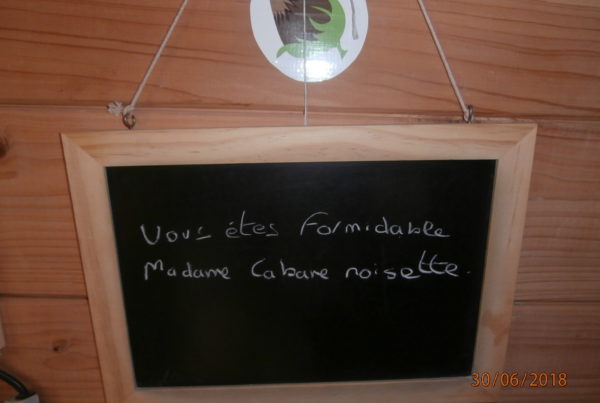 Vous êtes formidable
Madame Cabane noisette.
30/06/2018